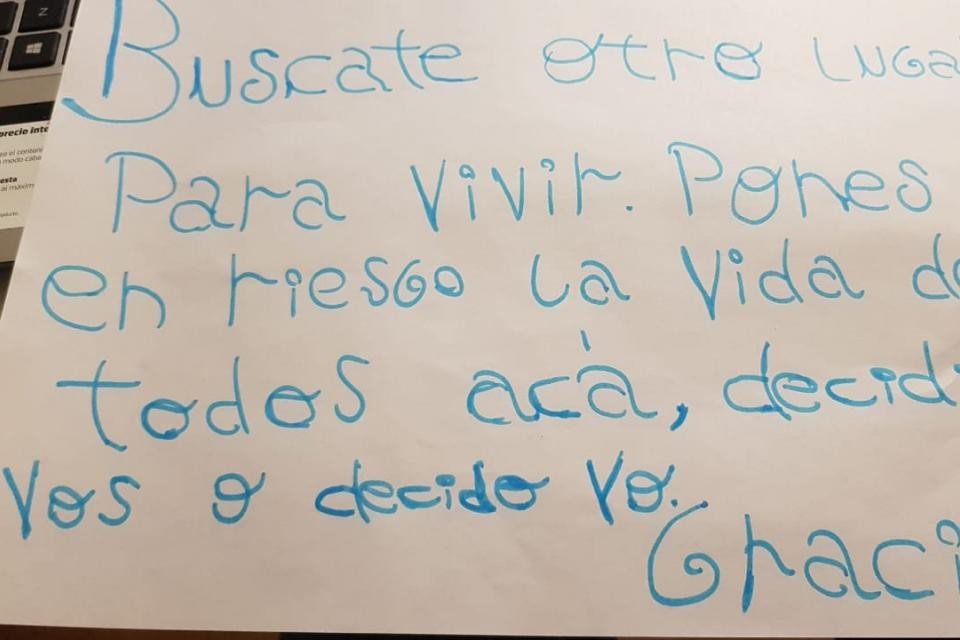 Buscate otro Luga
Para vivir. Pones
en riesgo La vida de
todos acá, decidi
vos o decido yo.
Graci
precio inte
esta
al máxim
Z